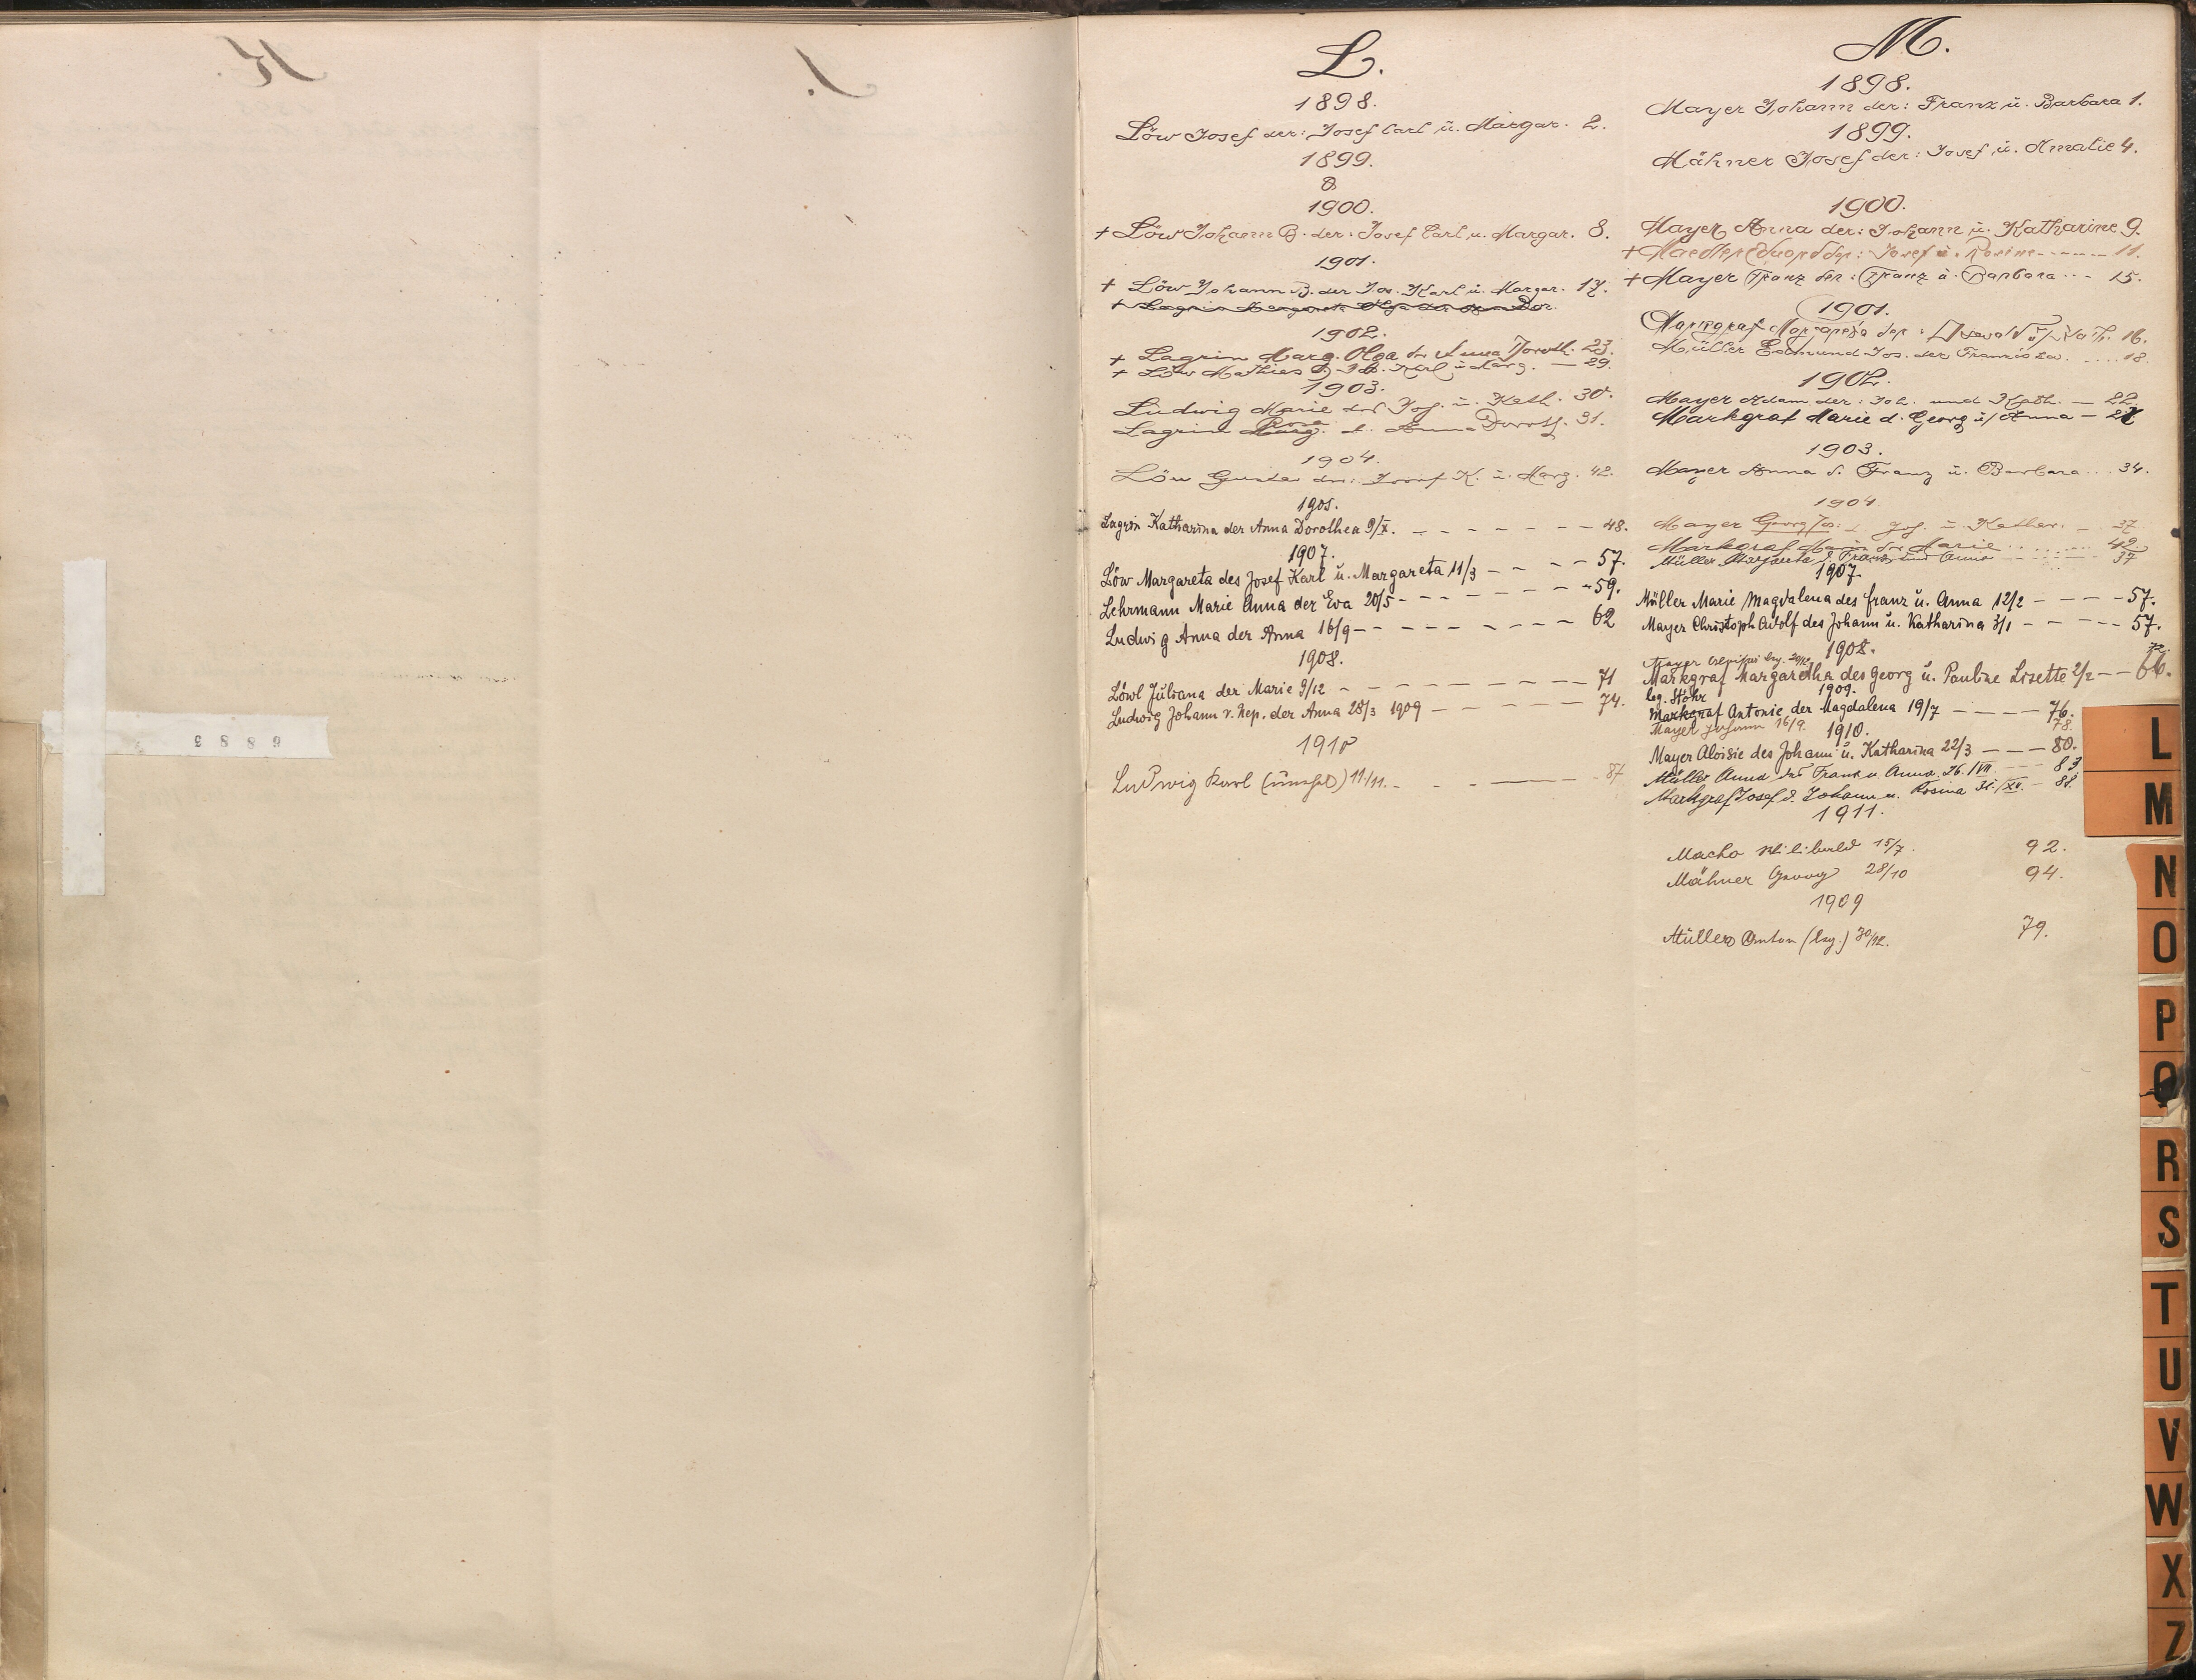 L.
1898.
Löw Josef der: Josef Carl u. Margar. 2.
1899.
1900.
+ Löw Johann B. der: Josef Carl u. Margar. 8.
1901.
+ Löw Johann B. der Jos. Karl u. Margar. 17.
1902.
+ Lagrin Marg. Olga der Anna Doroth. 23.
+ Löw Mathias Jos. Karl u Marg. — 29.
1903.
Ludwig Marie des Jos. u. Kath. 30.
Lagrin Rosa d. Anna Doroth. 31.
1904.
Löw Gustav der: Josef K. u. Marg. 42.
1905.
Lagrin Katharina der Anna Dorothea 9/X. - - - - - - - 48.
1907.
Löw Margareta des Josef Karl u. Margareta 11/3 - - - - 57.
Lehrmann Marie Anna der Eva 20/5 - - - - - - - - 59.
Ludwig Anna der Anna 16/9 - - - - - - - - - 62
1908.
Löwl Juliana der Marie 9/12 - - - - - - - - - 71
Ludwig Johann v. Nep. der Anna 28/3 1909 - - - - - - 74.
1910
Ludwig Karl (unehel) 11./11. - - - — - 87
M.
1898.
Mayer Johann der: Franz u. Barbara 1.
1899.
Mähner Josef der: Josef u. Amalie 4.
1900.
Mayer Anna der: Johann u. Katharine 9.
+ Maedler Eduard der: Josef u. Rosine - - - - - 11.
+ Mayer Franz der: Franz u. Barbara - - - 15.
1901.
Markgraf Margareta der: 16.
Müller Edmund Jos. der Franziska. .... 18.
1902.
Mayer Adam der: Joh. und Kath. — 22.
Markgraf Marie d. Georg u. Anna —
1903.
Mayer Anna d. Franz u. Barbara ... 34.
1904
Mayer Georg Jos: d. Joh. u. Kathar. - 37
Markgraf Maria der Marie ........ 42
Müller Margareta d Franz und Anna - - - - 37
1907
Müller Marie Magdalena des Franz u. Anna 12/2 - - - - 57.
Mayer Christoph Adolf des Johann u. Katharina 3/1 - - - - - 57.
1908.
Mayer leg. 72.
Markgraf Margaretha des Georg u. Pauline Lisette 2/2 - - 66.
leg. Stöhr
1909.
Markgraf Antonie der Magdalena 19/7 - - - - - 76.
Mayer Johann 16/9. 78.
1910.
Mayer Aloisie des Johann u. Katharina 22/3 - - - 80.
Müller Anna des Franz u. Anna. 26./VII - - - 83
Markgraf Josef d. Johann u. Rosina 31./XII. - 88.
1911.
Macho Wilibald 15/7. 92.
Mähner Georg 28/10 94.
1909
Müller Anton (leg.) 30/12. 79.
6883
L
M
N
O
P
Q
R
S
T
U
V
W
X
Z